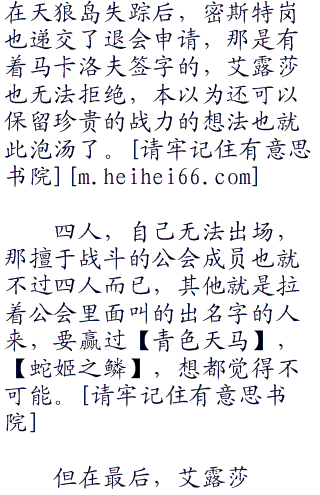 在天狼岛失踪后，密斯特岗
也递交了退会申请，那是有
着马卡洛夫签字的，艾露莎
也无法拒绝，本以为还可以
保留珍贵的战力的想法也就
此泡汤了。[请牢记住有意思
书院][m.heihei66.com]
四人，自己无法出场，
那擅于战斗的公会成员也就
不过四人而已，其他就是拉
着公会里面叫的出名字的人
来，要赢过【青色天马】，
【蛇姬之鳞】，想都觉得不
可能。[请牢记住有意思书
院]
但在最后，艾露莎